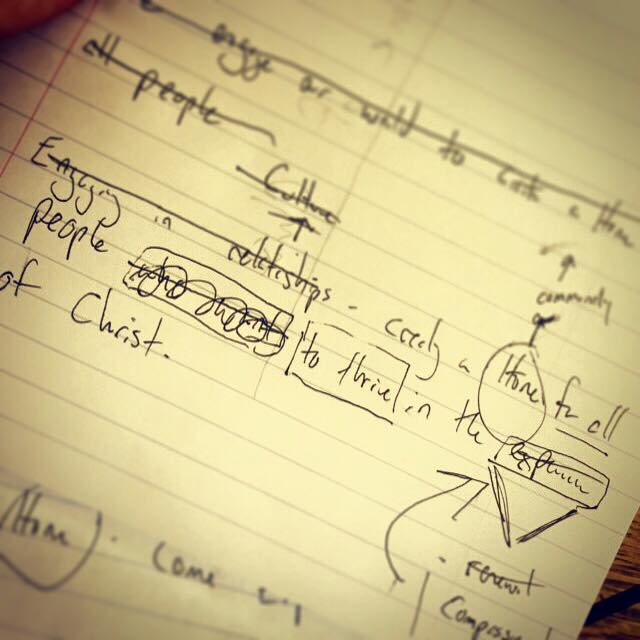 engage our world to create a Home
all people
Culture
Engaging in relationships - creating a Home for all
community
people to thrive in the
of Christ.
Home). Come